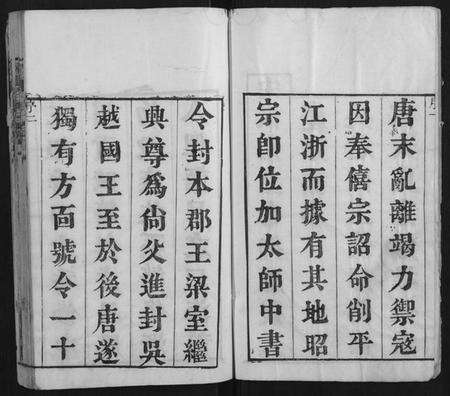 唐末亂離竭力禦寇
因奉僖宗詔命削平
江浙而據有其地昭
宗卽位加太師中書
令封本郡王梁室繼
興尊為尙父進封吳
越國王至於後唐遂
獨有方面號令一十
序二